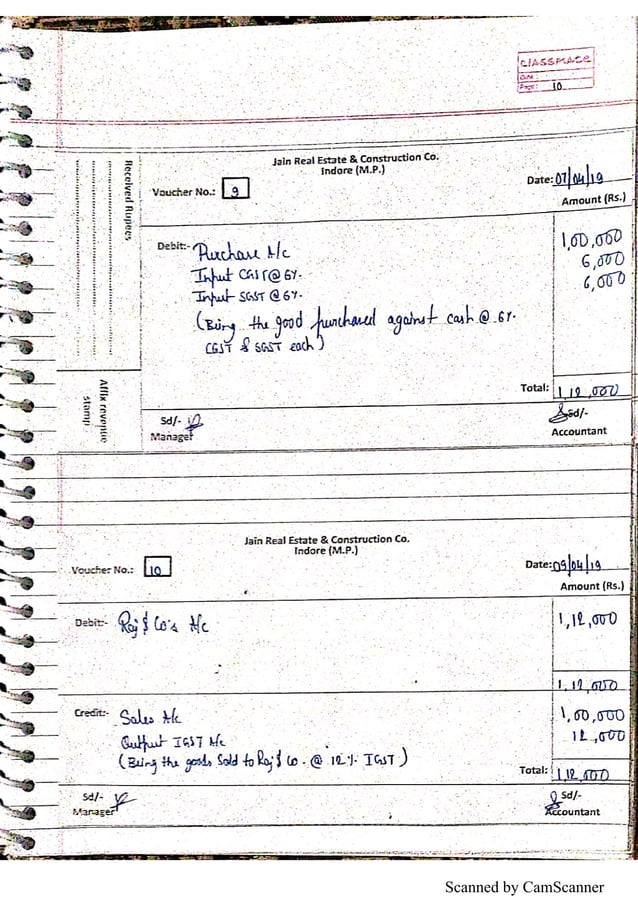 CLASSMATE
Date :
Page : 10
Jain Real Estate & Construction Co.
Indore (M.P.)
Voucher No.: 9
Date: 07/04/19
Amount (Rs.)
Received Rupees
Debit:- Purchase A/c 1,00,000
Input CGST @ 6%. 6,000
Input SGST @ 6%. 6,000
(Being the good purchased against cash @ 6%.
CGST & SGST each)
Affix revenue
stamp
Total: 1,12,000
Sd/-
Manager
Sd/-
Accountant
Jain Real Estate & Construction Co.
Indore (M.P.)
Voucher No.: 10
Date: 09/04/19
Amount (Rs.)
Debit:- Raj & Co's A/c 1,12,000
1,12,000
Credit:- Sales A/c 1,00,000
Output IGST A/c 12,000
(Being the goods sold to Raj & Co. @ 12% IGST)
Total: 1,12,000
Sd/-
Manager
Sd/-
Accountant
Scanned by CamScanner